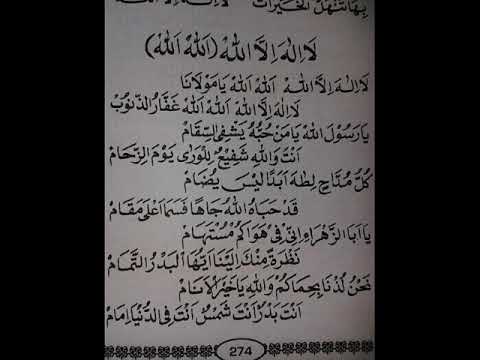 بِهَا تَنْهَلُ الْخَيْرَاتُ لَا اِلٰهَ اِلَّا اللّٰهُ
لَا اِلٰهَ اِلَّا اللّٰهُ (اَللّٰهُ اَللّٰهُ)
لَا اِلٰهَ اِلَّا اللّٰهُ اَللّٰهُ اَللّٰهُ يَا مَوْلَانَا
لَا اِلٰهَ اِلَّا اللّٰهُ اَللّٰهُ اَللّٰهُ غَفَّارُ الذُّنُوْبْ
يَا رَسُوْلَ اللّٰهِ يَا مَنْ حُبُّهُ يَشْفِى السِّقَامْ
اَنْتَ وَاللّٰهِ شَفِيْعٌ لِلْوَرٰى يَوْمَ الزِّحَامْ
كُلُّ مُنَّاحٍ لِطٰهَ اَبَدًا لَيْسَ يُضَامْ
قَدْ حَبَاهُ اللّٰهُ جَاهًا فَسَمَا اَعْلٰى مَقَامْ
يَا اَبَا الزَّهْرَاءِ اِنِّىْ فِىْ هَوَاكُمْ مُسْتَهَامْ
نَظْرَةً مِنْكَ اِلَيْنَا اَيُّهَا الْبَدْرُ التَّمَامْ
نَحْنُ لُذْنَا بِحِمَاكُمْ وَاللّٰهِ يَا خَيْرَ الْاَنَامْ
اَنْتَ بَدْرٌ اَنْتَ شَمْسٌ اَنْتَ فِى الدُّنْيَا اِمَامْ
274